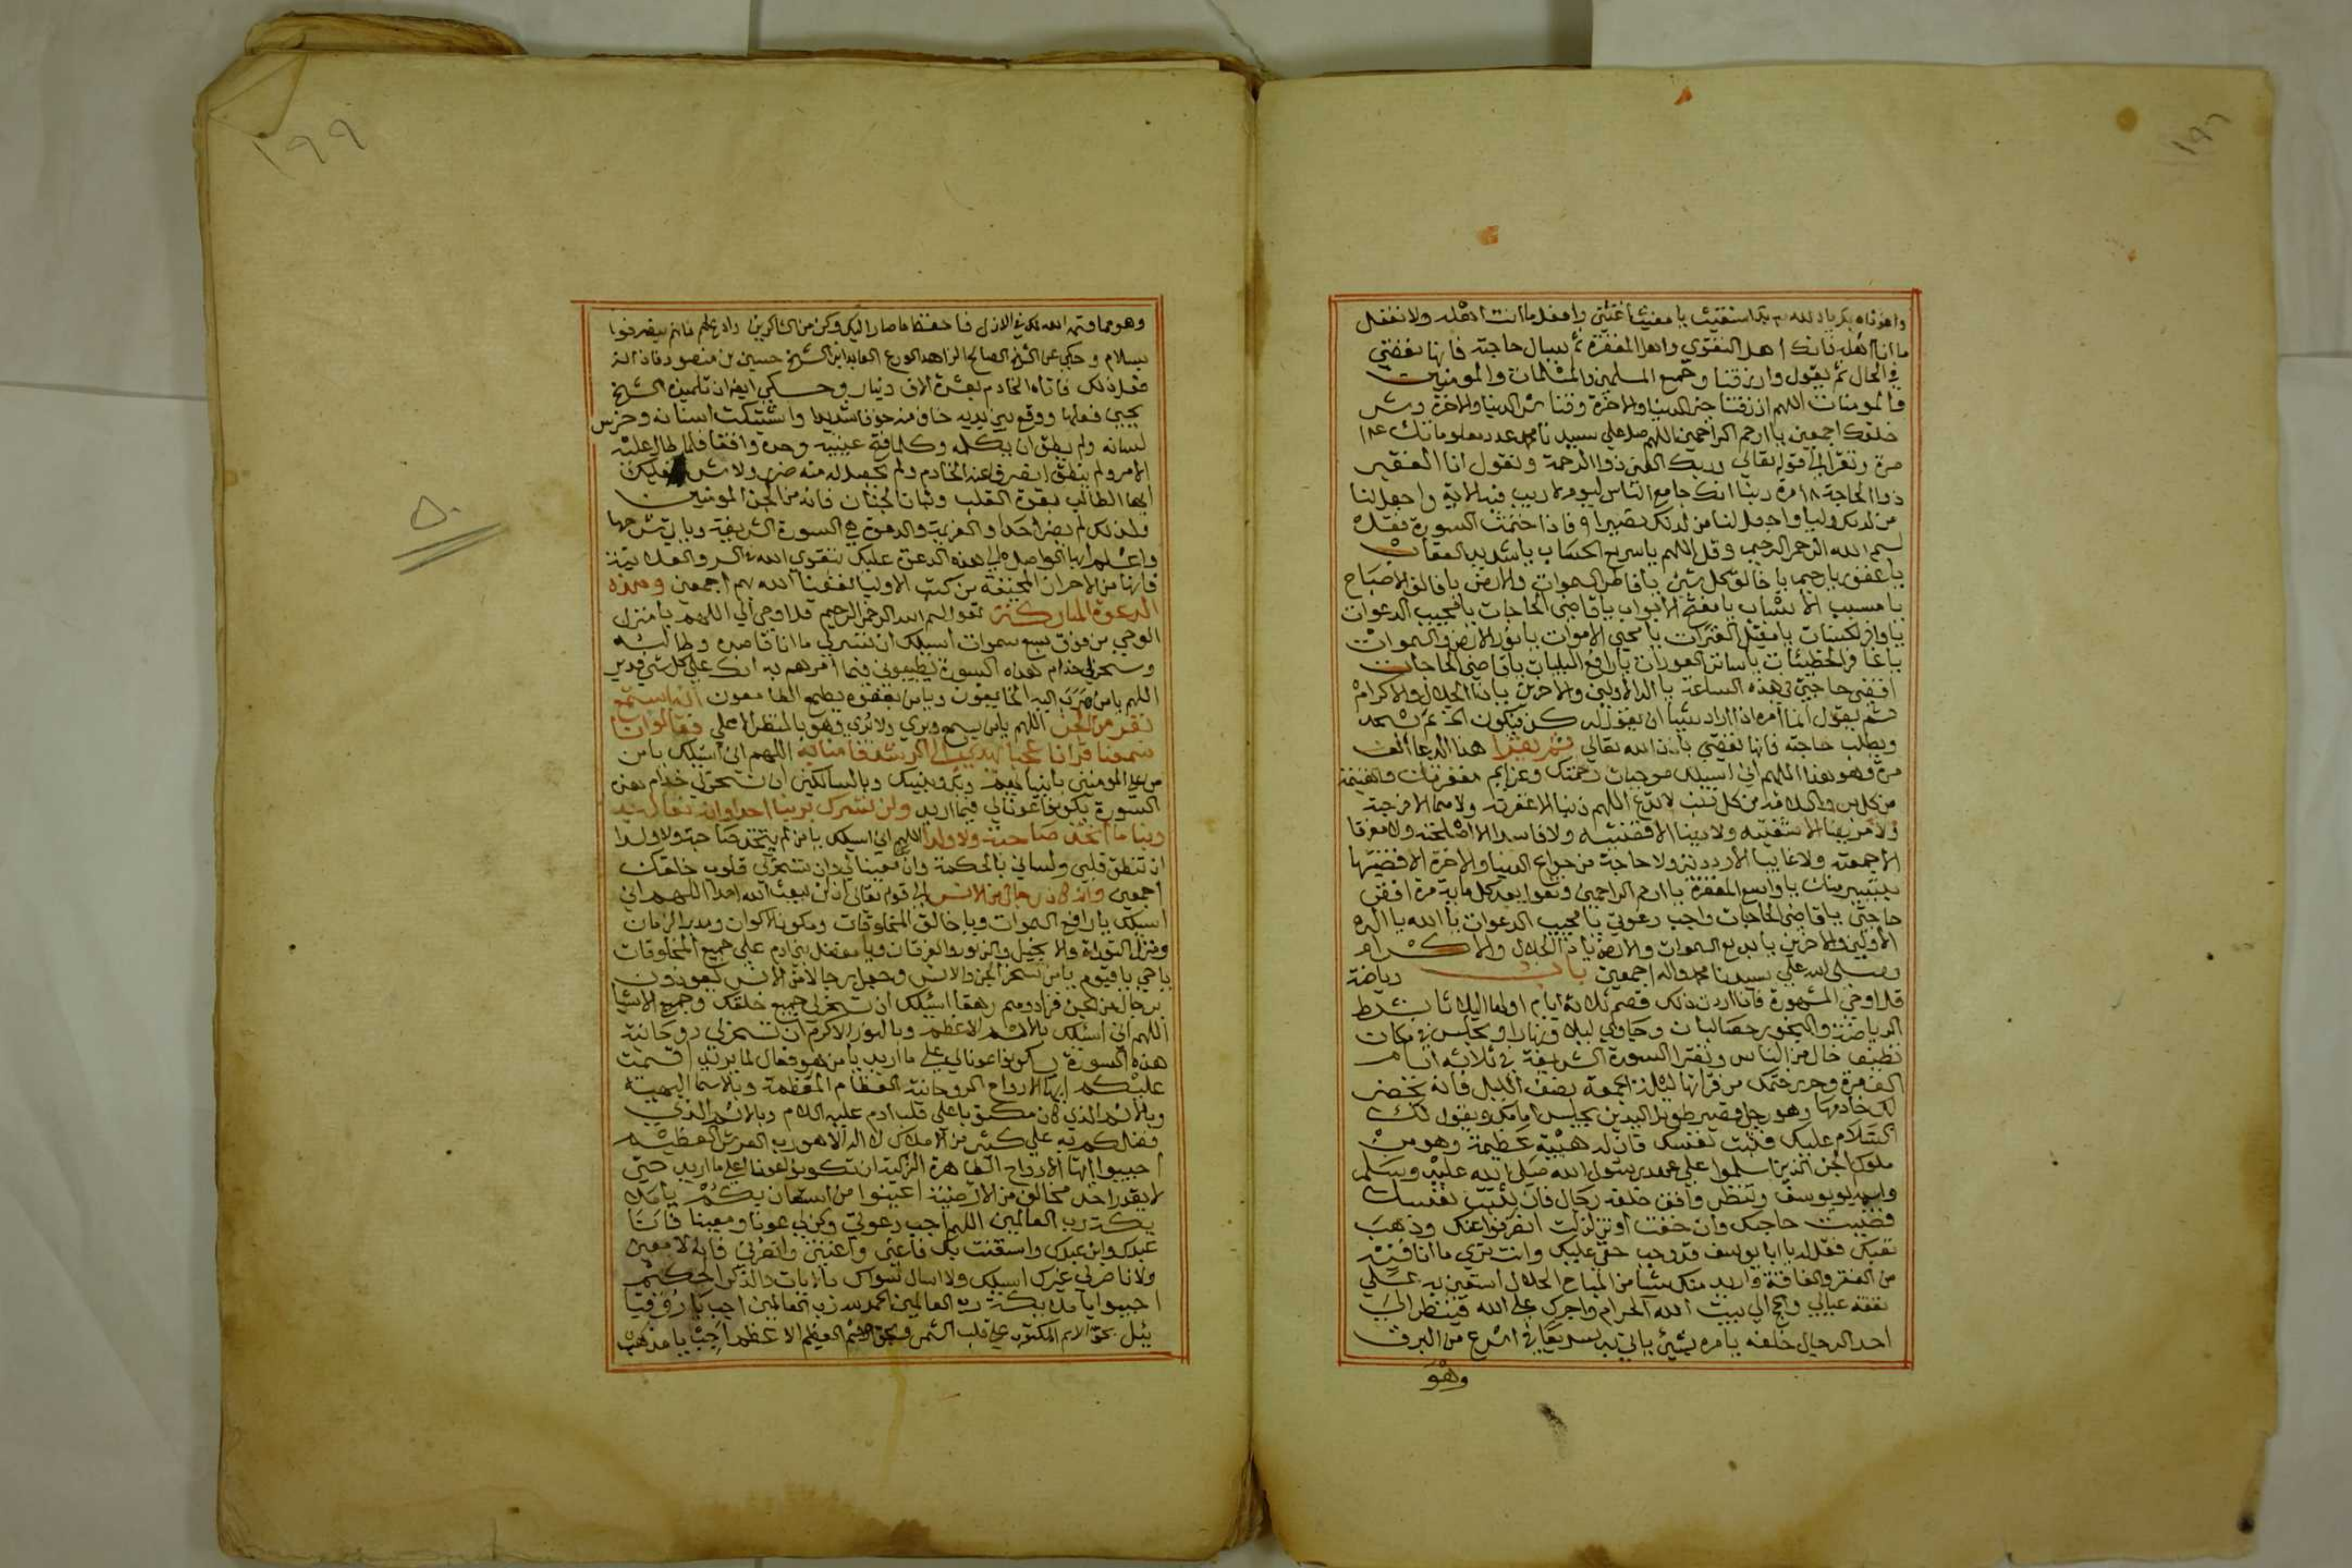 ١٩٦
ما انا اهله فانك اهل التقوى واهل المغفرة ثم يسال حاجته فانها تقضى
في الحال ثم يقول وارزقنا وجميع المسلمين والمسلمات والمومنين
والمومنات اللهم ارزقنا خير الدنيا والاخرة وقنا شر الدنيا والاخرة وشر
خلقك اجمعين يا ارحم الراحمين اللهم صل على سيدنا محمد عدد معلوماتك
مرة وتقرا الى قوله تعالى وربك الغني ذوا الرحمة وتقول انا الفقير
ذوا الحاجة ١٨ مرة ربنا انك جامع الناس ليوم لا ريب فيه الاية واجعل لنا
من لدنك وليا واجعل لنا من لدنك نصيرا ٩ فاذا ختمت السورة فقل
بسم الله الرحمن الرحيم وقل اللهم يا سريع الحساب يا شديد العقاب
يا غفور يا رحيم يا خالق كل شئ يا فاطر السموات والارض يا فالق الاصباح
يا مسبب الاسباب يا مفتح الابواب يا قاضي الحاجات يا مجيب الدعوات
يا مقيل العثرات يا محيي الاموات يا نور الارض والسموات
يا غافر الخطيئات يا ساتر العورات يا رافع البليات يا قاضي الحاجات
اقضى حاجتي في هذه الساعة يا اله الاولين والاخرين يا ذا الجلال والاكرام
ثم يقول انما امره اذا اراد شيئا ان يقول له كن فيكون الخ ثم تسجد
ويطلب حاجته فانها تقضى باذن الله تعالى ثم يقرا هذا الدعا الف
مرة وهو هذا اللهم اني اسيلك موجبات رحمتك وعزايم مغفرتك والغنيمة
من كل بر والسلامة من كل ذنب لا تدع اللهم ذنبا الا غفرته ولا هما الا فرجته
ولا مريضا الا شفيته ولا دينا الا قضيته ولا فاسدا الا اصلحته ولا مفرقا
الا جمعته ولا غايبا الا رددته ولا حاجة من حوايج الدنيا والاخرة الا قضيتها
بتيسير منك يا واسع المغفرة يا ارحم الراحمين وتقول بعد كل ماية مرة اقضى
حاجتي يا قاضي الحاجات واجب دعوتي يا مجيب الدعوات يا الله يا اله
الاولين والاخرين يا بديع السموات والارض يا ذا الجلال والاكرام
وصلى الله على سيدنا محمد واله اجمعين باب رياضة
قل اوحي المشهورة فاذا اردت ذلك فصم ثلاثة ايام اولها الثلاثا بشرط
الرياضة والبخور حصالبان وجاوي ليلا ونهارا وتجلس في مكان
نظيف خال من الناس وتقرا السورة الشريفة في ثلاثة ايام
الف مرة وحرر ختمك من قراتها ليلة الجمعة نصف الليل فانه يحضر
لك خادمها وهو رجل قصير طويل اليدين يجلس امامك ويقول لك
السلام عليك فثبت نفسك فان له هيبة عظيمة وهو من
ملوك الجن الذين اسلموا على عهد رسول الله صلى الله عليه وسلم
واسمه ابو يوسف وتنظر واقف خلفه رجال فان ثبت نفسك
قضيت حاجتك وان خفت او تزلزلت انصرفوا عنك وذهب
تعبك فقل له يا ابا يوسف قد وجب حقي عليك وانت ترى ما انا فيه
من الفقر والفاقة واريد منك شيا من المباح الحلال استعين به على
نفقة عيالي واحج الى بيت الله الحرام واجرك على الله فينظر الى
احد الرجال خلفه يامره بشئ ياتي به سريعا في اسرع من البرق
وهو
١٩٩
٥٠
وهو مما قسمه الله لك في الازل فاحفظ ما صار اليك وكن من الشاكرين وادع لهم فانهم ينصرفوا
بسلام وحكي عن الشيخ الصالح الزاهد الورع العابد ابن الشيخ حسين بن منصور
فعل ذلك فاتاه الخادم بعشرة الاف دينار وحكي ايضا ان تلميذه الشيخ
يحيى فعلها ووقع بين يديه خاف منه خوفا شديدا واشتبكت اسنانه وخرس
لسانه ولم يطق ان يتكلم وكلما فتح عينيه وجده واقفا فلما طال عليه
الامر ولم ينطق انصرف عنه الخادم ولم يحصل له منه ضر ولا شر فليكن
ايها الطالب بقوة القلب وثبات الجنان فانه من الجن المومنين
ولذلك لم يضر احدا والعزيمة والدعوة هي السورة الشريفة
واعلم ايها الواصل الى هذه الدعوة عليك بتقوى الله في السر والعلانية
فانها من الاحراز المجننة من كتب الاوليا نفعنا الله بهم اجمعين وهذه
الدعوة المباركة تقول بسم الله الرحمن الرحيم قل اوحي الي اللهم يا منزل
الوحي من فوق سبع سموات اسيلك ان تيسر لي ما انا قاصده وطالبه
وسخر لي خدام هذه السورة يطيعوني فيما امرهم به انك على كل شئ قدير
اللهم يا من هرب اليه الخايفون ويا من بعفوه يطمع الطامعون انه استمع
نفر من الجن اللهم يا من يسمع ويرى ولا يرى وهو بالمنظر الاعلى فقالوا انا
سمعنا قرانا عجبا يهدي الى الرشد فامنا به اللهم اني اسيلك يا من
السورة يكونوا عونا لي فيما اريد ولن نشرك بربنا احدا وانه تعالى جد
ربنا ما اتخذ صاحبة ولا ولدا اللهم اني اسيلك يا من لم يتخذ صاحبة ولا ولدا
ان تنطق قلبي ولساني بالحكمة وان تسخر لي قلوب خلقك
اجمعين وانه كان رجال من الانس الى قوله تعالى ان لن يبعث الله احدا اللهم اني
اسيلك يا رافع السموات ويا خالق المخلوقات ومكون الاكوان ومدبر الزمان
ومنزل التوراة والانجيل والزبور والفرقان ويا مفضل بني ادم على جميع المخلوقات
يا حي يا قيوم يا من سخر الجن والانس وجعل رجالا من الانس يعوذون
برجال من الجن فزادوهم رهقا اسيلك ان تسخر لي جميع خلقك وجميع الاشيا
اللهم اني اسيلك بالاسم الاعظم وبالنور الاكرم ان تسخر لي روحانية
هذه السورة يكونوا عونا لي على ما اريد يا من هو فعال لما يريد اقسمت
عليكم ايتها الارواح الروحانية العظام المعظمة وبالاسما البهية
وبالاسم الذي كان مكتوبا على قلب ادم عليه السلام وبالاسم الذي
فضلكم به على كثير من الاملاك لا اله الا هو رب العرش العظيم
اجيبوا ايتها الارواح الطاهرة الزكية ان تكونوا عونا لي على ما اريد حتى
لا يقدر احد مخالفي من الارضية اعينوا من استعان بكم
رب العالمين اللهم اجب دعوتي وكن لي عونا ومعينا فانا
عبدك وابن عبدك واستغنت بك فاغني واعنني وانصرني فانه لا معين
ولا ناصر لي غيرك اسيلك ولا اسال سواك بالايات والذكر الحكيم
رب العالمين الحمد لله رب العالمين اجب يا روقيا
ييل بحق الاسم المكتوب على قلب الشمس وبحق الاسم العظيم الاعظم اجب يا مذهب